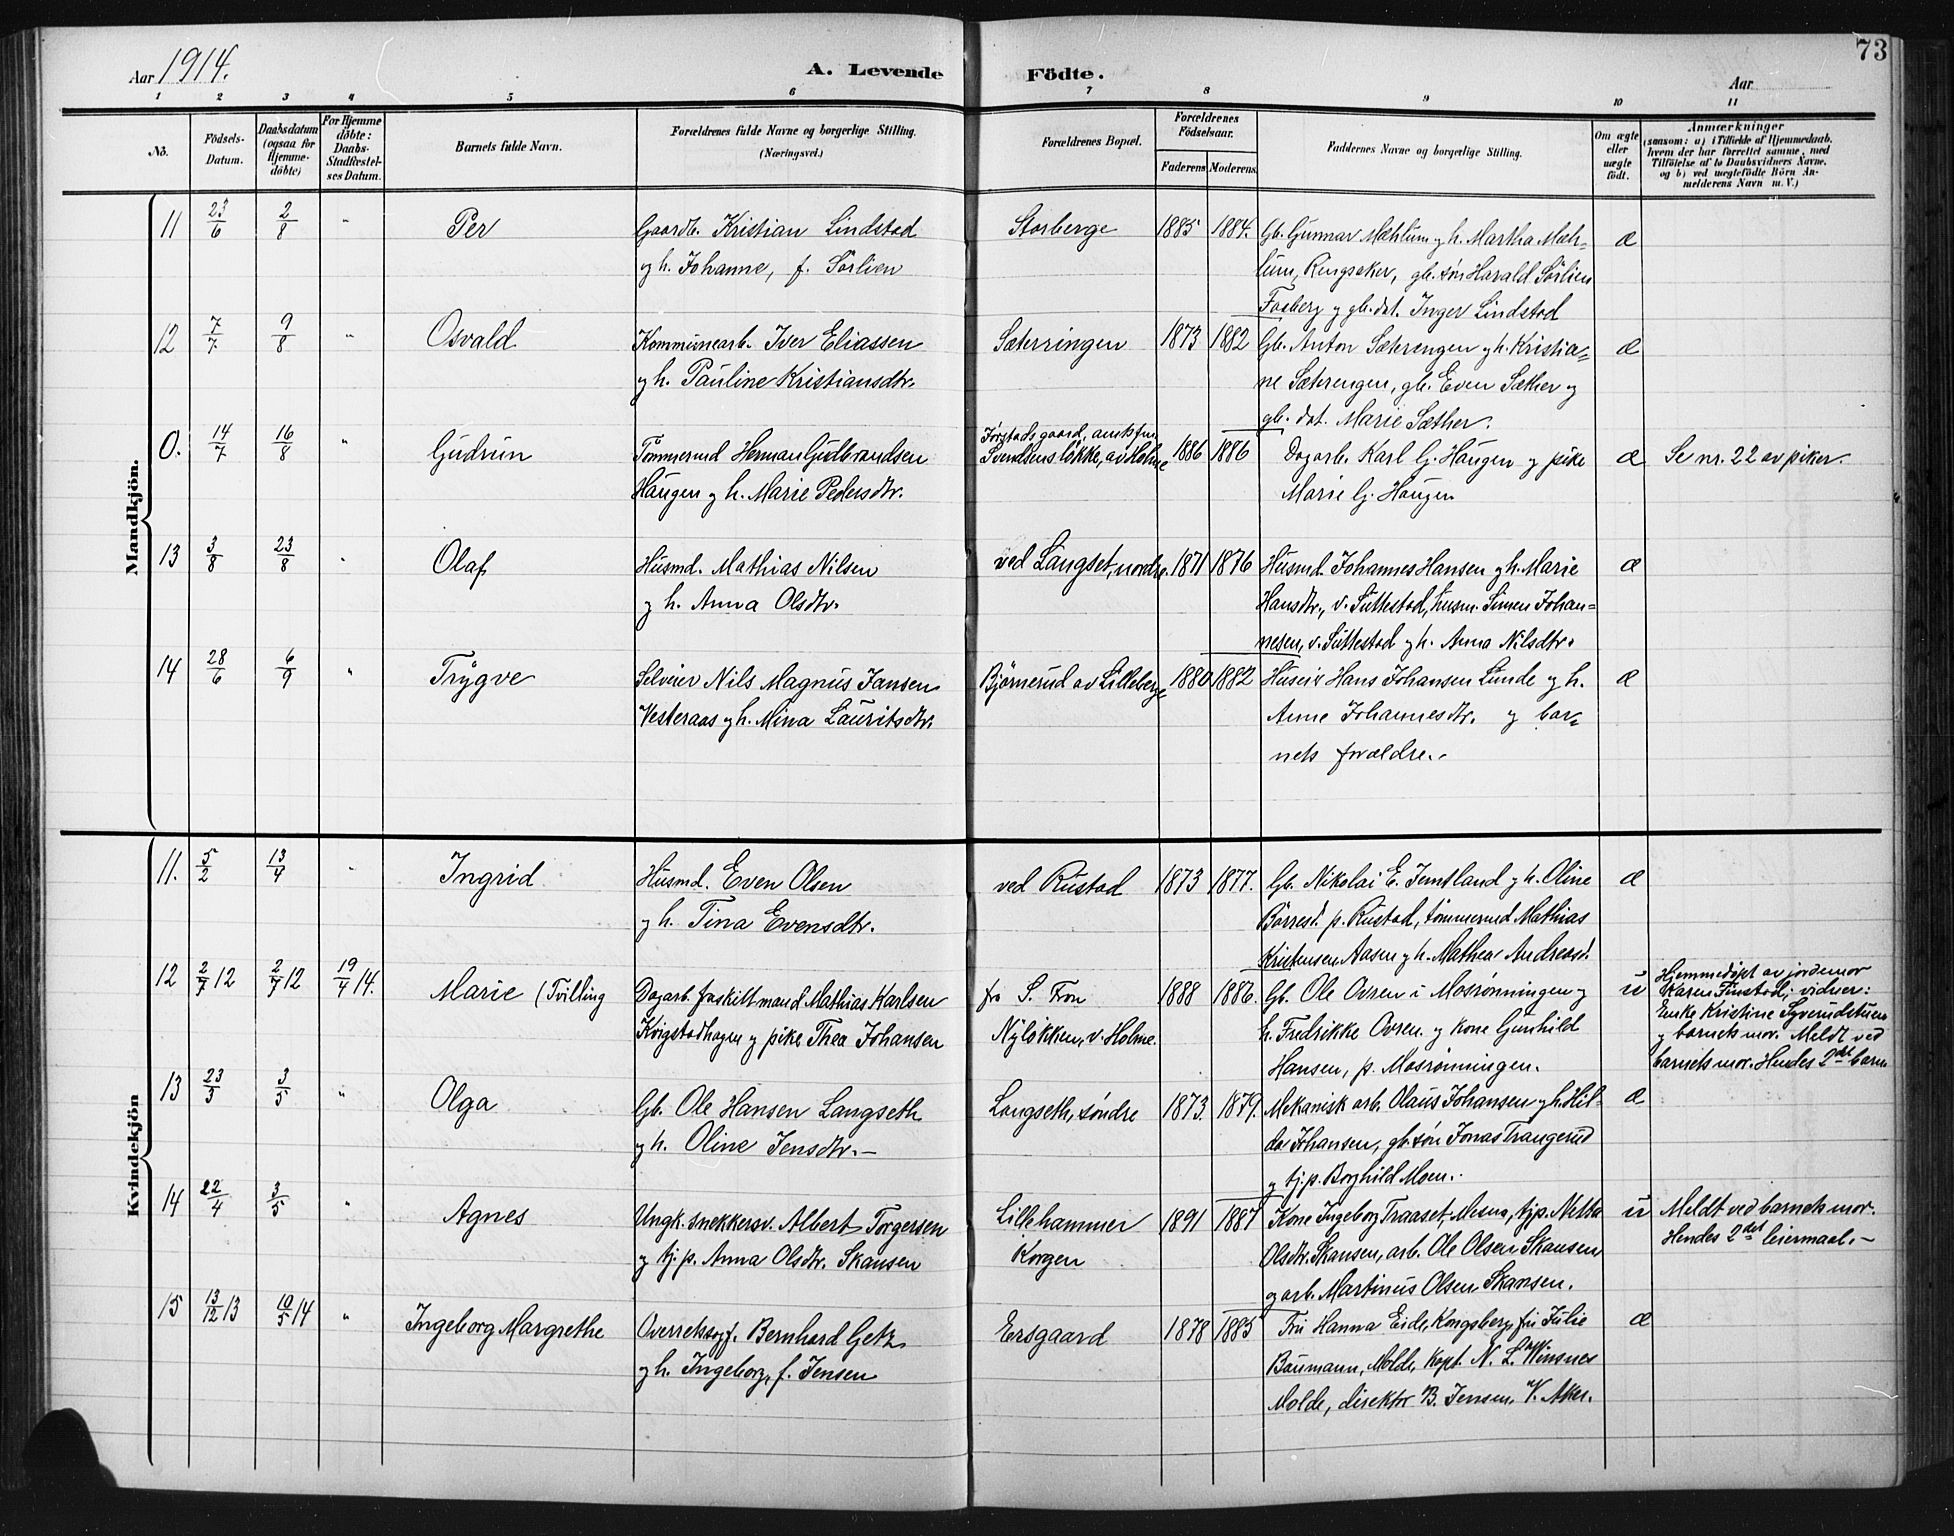 73
Aar 1914.
A. Levende Födte.
Aar
1 2 3 4 5 6 7 8 9 10 11
No.
Födsels-
Datum.
Daabsdatum
(ogsaa for
Hjemme-
döbte)
For Hjemme
döbte:
Daabs-
Stadfæstel-
ses Datum.
Barnets fulde Navn.
Forældrenes fulde Navne og borgerlige Stilling.
(Næringsvei.)
Forældrenes Bopæl.
Forældrenes
Födselsaar.
Faderens
Moderens
Faddernes Navne og borgerlige Stilling.
Om ægte
eller
uægte
födt.
Anmærkninger
(saasom: a) i Tilfælde af Hjemmedaab.
hvem der har forrettet samme, med
Tilföielse af to Daabsvidners Navne.
og b) ved uægtefödte Börn An-
melderens Navn m. V.)
Mandkjön.
11 23/6 2/8 " Per
Gaardb. Kristian Lindstad
og h. Johanne, f. Sörlien
Storberge 1885 1884.
Gb. Gunnar Mæhlum og h. Martha Mæh-
lum, Ringsaker, gb. sön Harald Sörlien
Faaberg og gb. dat. Inger Lindstad
æ
12 7/7 9/8 " Osvald
Kommunearb. Iver Eliassen
og h. Pauline Kristiansdtr.
Sæterringen 1873 1882
Gb. Anton Sæterengen og h. Kristia=
ne Sæterengen, gb. Even Sæther og
gb. dat. Marie Sæther.
æ
O. 14/7 16/8 " Gudrun
Tömmermd Herman Gudbrandsen
Haugen og h. Marie Pedersdtr.
Jörstads gaard, amtsfm.
Svendsens lökke, av Holme
1886 1886
Dagarb. Karl G. Haugen og pike
Marie G. Haugen
æ
Se nr. 22 av piker.
13 3/8 23/8 " Olaf
Husmd. Mathias Nilsen
og h. Anna Olsdtr.
ved Langset, nordre. 1871 1876
Husmd. Johannes Hansen og h. Marie
Hansdtr., v. Suttestad, husm. Simen Johan=
nesen, v. Suttestad og h. Anna Nilsdtr.
æ
14 28/6 6/9 " Trygve
Selveier Nils Magnus Jansen
Vesteraas og h. Mina Lauritsdtr.
Björnerud av Lilleberge 1880 1882
Huseier Hans Johansen Lunde og h.
Anne Johannesdtr. og bar=
nets forældre.
æ
Kvindekjön
11. 5/2 13/4 " Ingrid
Husmd. Even Olsen
og h. Tina Evensdtr.
ved Rustad 1873 1877.
Gb. Nikolai E. Jemtland og h. Oline
Börresd. p. Rustad, tömmermd Mathias
Kristensen Aasen og h. Mathea Andreasd.
æ
12 2/7 12 2/7 12 19/4 14. Marie (Tvilling
Dagarb. fraskilt mand Mathias Karlsen
Kvigstadhagen og pike Thea Johansen
fra S. Fron
Nylökken, v. Holme.
1888 1886.
Gb. Ole Ovren i Mosrönningen og
h. Fredrikke Ovren og kone Gunhild
Hansen, p. Mosrönningen.
u
Hjemmedöpt av jordemor
Karen Finstad; vidner:
Enke Kristine Syverudstuen
og barnets mor. Meldt ved
barnets mor. Hendes 2det barn
13 23/3 3/5 " Olga
Gb. Ole Hansen Langseth
og h. Oline Jensdtr. —
Langseth, söndre 1873. 1879.
Mekanisk arb. Olaus Johansen og h. Hil-
da Johansen, gb. sön Jonas Trangerud
og tj. p. Borghild Moen.
æ
14 22/4 3/5 " Agnes
Ungk. snekkersv. Albert Torgersen
og tj. p. Anna Olsdtr. Skansen
Lillehammer
Korgen
1891 1887
Kone Ingeborg Traaset, Mesna, tj.p. Netta
Olsdtr. Skansen, arb. Ole Olsen Skansen
og arb. Martinus Olsen Skansen.
u
Meldt ved barnets mor.
Hendes 2det leiermaal. —
15 13/12 13 10/5 14 " Ingeborg Margrethe
Overretssagf. Bernhard Getz
og h. Ingeborg, f. Jensen
Ersgaard 1878 1885
Fru Hanna Eide, Kongsberg, fru Julie
Baumann, Molde, Kapt. N. L. Winsnes
Molde, direktör B. Jensen, V. Aker.
æ